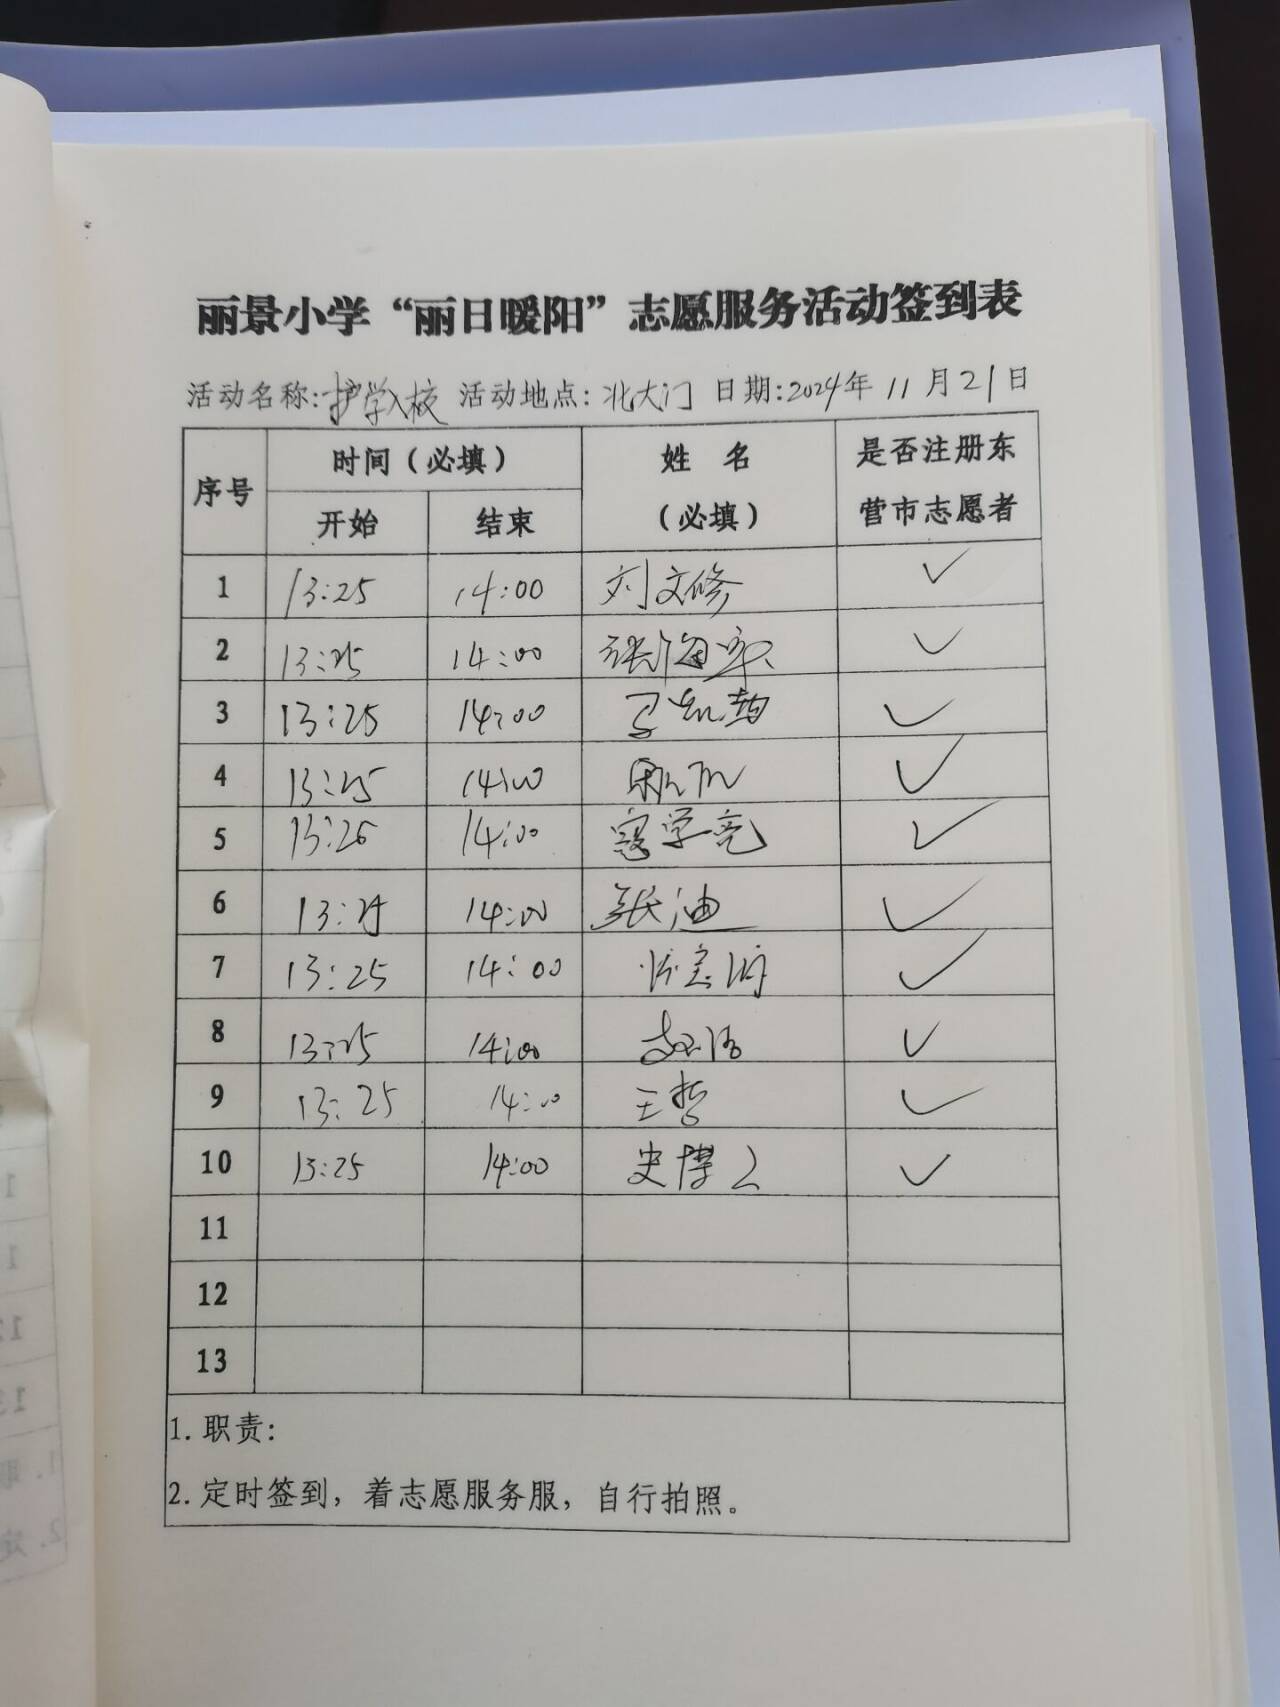 丽景小学“丽日暖阳”志愿服务活动签到表
活动名称:护学入校 活动地点:北大门 日期:2024年11月21日
序号 时间(必填) 姓 名 (必填) 是否注册东营市志愿者
开始 结束
1 13:25 14:00 刘文修 ✓
2 13:25 14:00 张海 ✓
3 13:25 14:00 ✓
4 13:25 14:00 ✓
5 13:26 14:00 寇学亮 ✓
6 13:25 14:00 张迪 ✓
7 13:25 14:00 ✓
8 13:25 14:00 ✓
9 13:25 14:00 王哲 ✓
10 13:25 14:00 史博 ✓
11
12
13
1.职责:
2.定时签到，着志愿服务服，自行拍照。